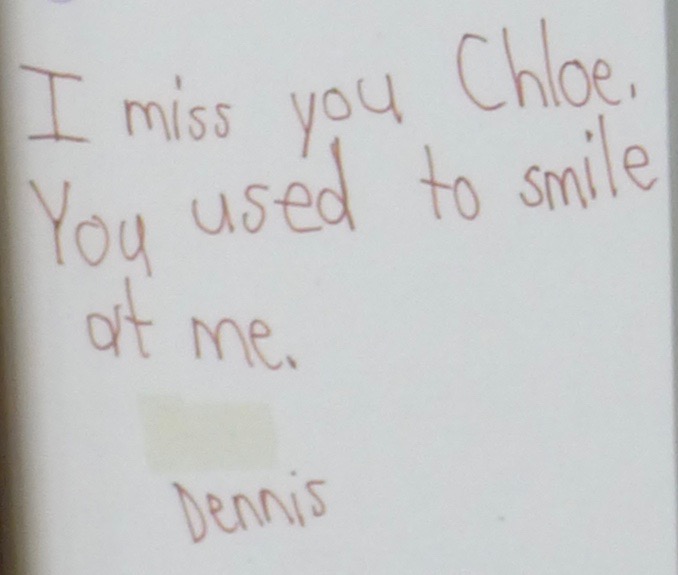 I miss you Chloe.
You used to smile
at me.
Dennis